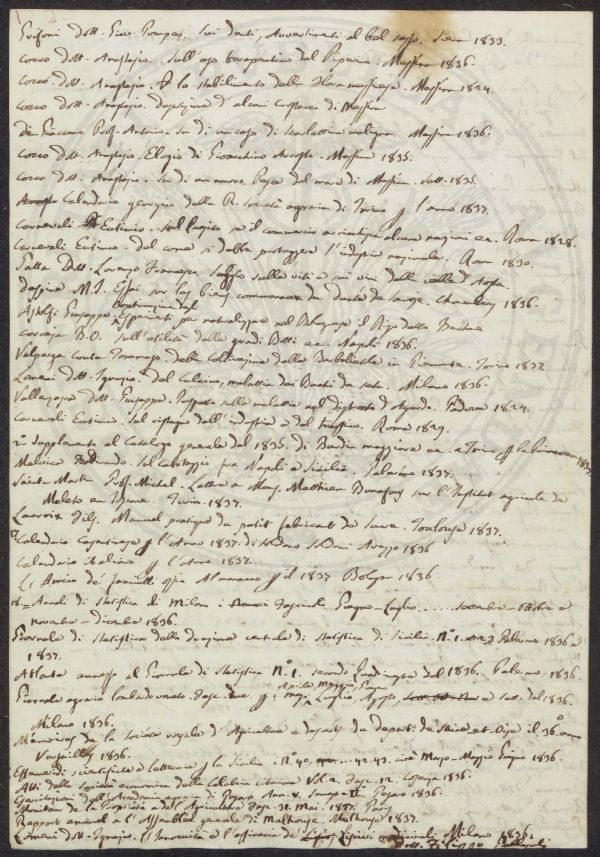 Grifoni dott. Gio: Pompeo. Sui denti, Avvertimenti al bel sesso. Siena 1833.
Cocco dott. Anastasio. Sull'uso terapeutico del Piperino. Messina 1836.
Cocco dott. Anastasio. lo stabilimento della Messina 1824.
Cocco dott. Anastasio. d'alcuni Crostacei di Messina
de Giacomo Prof. Antonino. Su di un caso di Scarlattina maligna. Messina 1836.
Cocco dott. Anastasio. Elogio di Gioacchino Arrosto. Messina 1835.
Cocco dott. Anastasio. Su di un nuovo Pesce del mare di Messina. Sett. 1835.
Calendario georgico della R. Società agraria di Torino p l'anno 1837.
Cornevali Eutimio. Sul se il commercio alcune nazioni ec. Roma 1828.
Carnevali Eutimio. Del come si debba proteggere l'industria nazionale. Roma 1830.
Gatta Dott. Lorenzo Francesco. Saggio sulle viti e sui vini della valle d'Aosta.
Dessaix M. J. sur les biens communaux du Duché de Savoye. Chambery 1836.
Astolfi Giuseppe. continuazione degli Esperimenti per naturalizzare nel Bolognese il Riso della
B. O. Sull'utilità delle gradi Botti ec. Napoli 1836.
Valperga Conte Tommaso. della Coltivazione della Barbabietola in Piemonte. Torino 1837.
Lomeni dott. Ignazio. del Calcino, malattia dei Bachi da seta. Milano 1836.
dott. Giuseppe. sulle malattie nel distretto d'Agordo. Padova 1824.
Carnevali Eutimio. Sul ristagno dell'industria e del traffico. Roma 1829.
2o Supplemento al Catalogo generale del 1835 di Burdin maggiore ec. e Torino p la Primavera 1837
Malvica Ferdinando. Sul Cabotaggio fra Napoli e Sicilia. Palermo 1837.
Sainte Martin Prof. Michel. Lettre a Mons. Matthieu Bonafous sur l'Institut agricole de
Meleto en Toscane. Turin. 1837.
Lacroix Manuel pratique du petit fabricant de Sucre. Toulouse 1837.
Calendario p l'Anno 1837. di Arezzo 1836
Calendario Italiano p l'Anno 1837.
L'Amico de' fanciulli ossia Almanacco p il 1837 Bologna 1836.
18= Annali di Statistica di Milano i Numeri Giugno-Luglio ..... Settembre-Ottobre e
novembre-dicembre 1836.
Giornale di Statistica della direzione centrale di Statistica di Sicilia No. 1. 2. 3 Palermo 1836 e
1837.
Atlante annesso al Giornale di Statistica No. 1. secondo quadrimestre del 1836. Palermo 1836.
Giornale agrario lombardo veneto. Fasc. due. p i mesi Aprile, Maggio, Giugno, Luglio, Agosto, e Sett. del 1836.
Milano 1836.
Mémoires de la Société royale d'Agriculture e départ. du départ. de Seine-et-Oise. il 36.o anno
Versailles 1836.
Effemeridi scientifiche e letterarie p la Sicilia: No. 40, 42. 43. cioè Marzo-Maggio Giugno 1836.
Atti della Società economica della Calabria citeriore Vol. 2. Fasc. 12. Cosenza 1836.
Esercitazioni dell'Accademia agraria di Pesaro Ann. V. Semestre II. Pesaro 1836.
Moniteur de la Propriété e de l'Agriculture Fasc. 31. Mai. 1837. Paris
Rapport annuel a l'Assemblée générale de Mulhouse. Mulhouse 1837.
Lomeni dott. Ignazio. L'Innocuità e l'efficacia de' Milano 1836.
Dott. Filippo